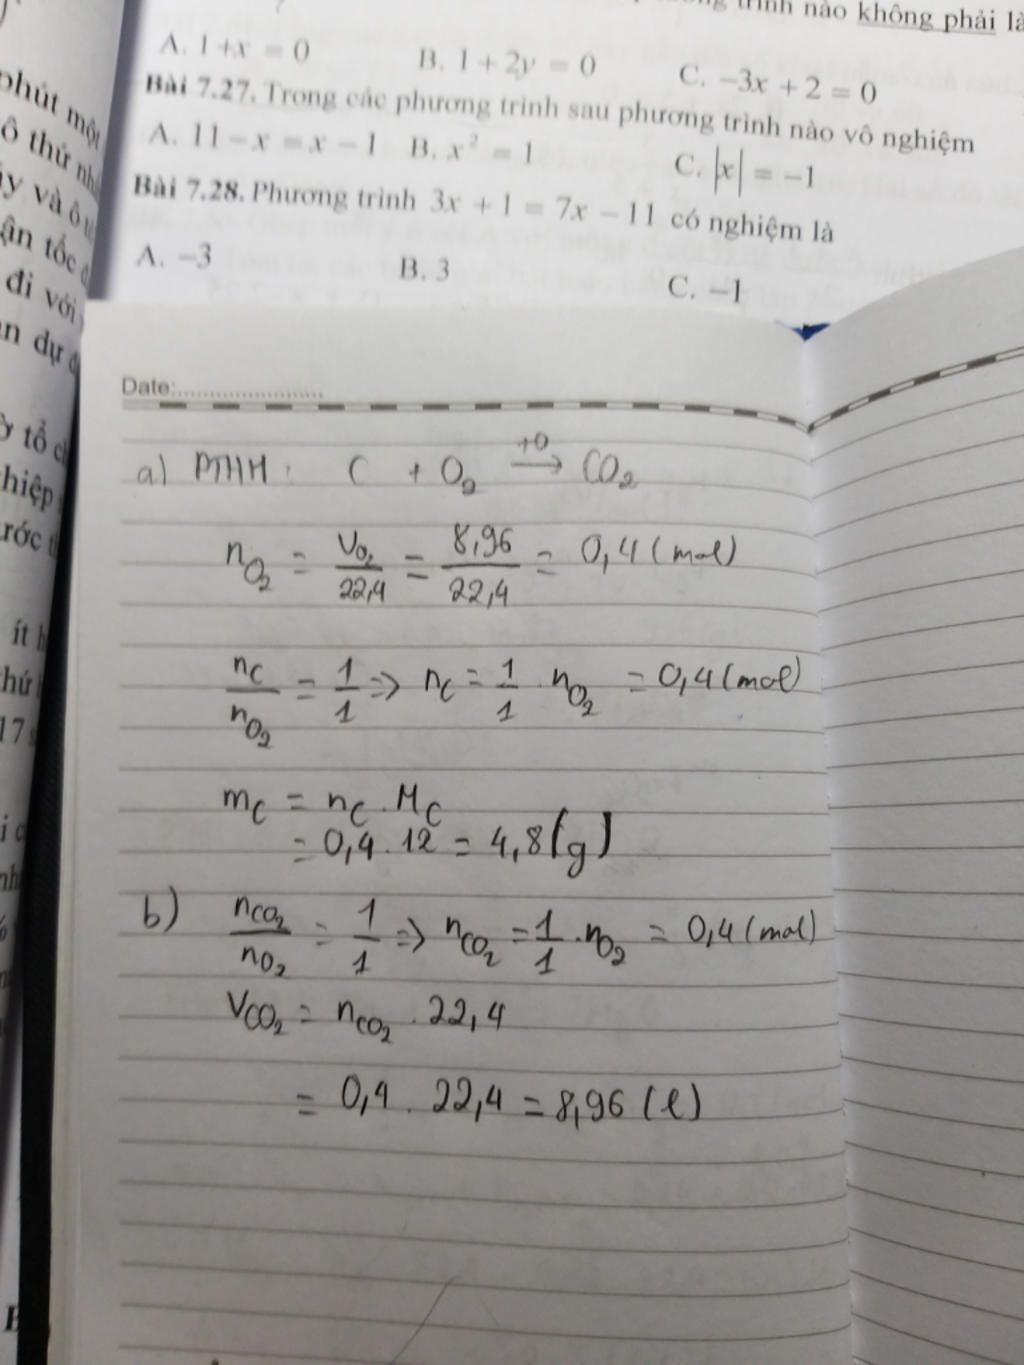 trình nào không phải là
A. 1+x = 0 B. 1 + 2y = 0 C. −3x + 2 = 0
Bài 7.27. Trong các phương trình sau phương trình nào vô nghiệm
A. 11 − x = x − 1 B. x² = 1 C. |x| = −1
Bài 7.28. Phương trình 3x + 1 = 7x − 11 có nghiệm là
A. −3 B. 3 C. −1
phút một
ô thứ
y và ô
ận tốc
đi với
n dự
tổ
hiệp
ước
ít
hứ
17
Date:
a) PTHH: C + O₂ +O→ CO₂
nO₂ = VO₂/22,4 = 8,96/22,4 = 0,4 (mol)
nC/nO₂ = 1/1 => nC = 1/1 . nO₂ = 0,4 (mol)
mC = nC . MC
= 0,4 . 12 = 4,8 (g)
b) nCO₂/nO₂ = 1/1 => nCO₂ = 1/1 . nO₂ = 0,4 (mol)
VCO₂ = nCO₂ . 22,4
= 0,4 . 22,4 = 8,96 (l)